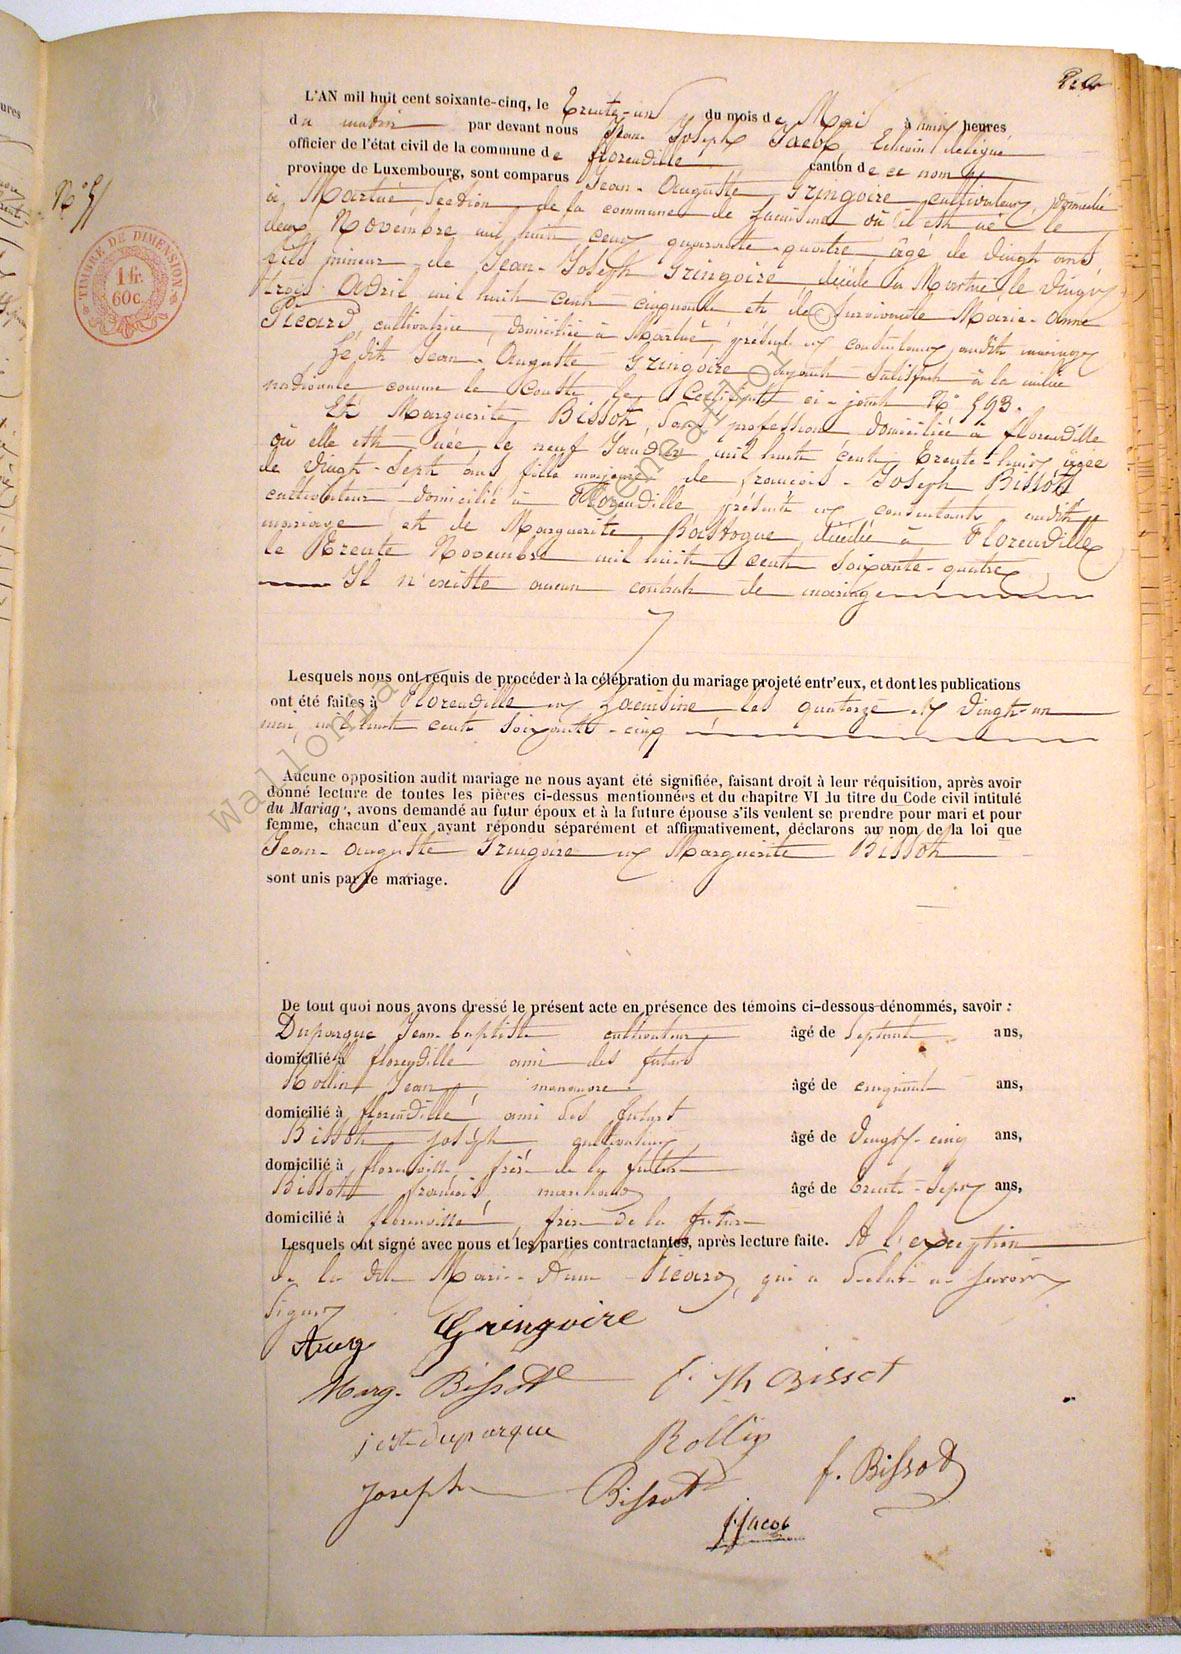 L'AN mil huit cent soixante-cinq, le Trente-un du mois de Mai à huit heures
du matin par devant nous Jean Joseph Jacob, Echevin délégué
officier de l'état civil de la commune de florenville canton de ce nom
province de Luxembourg, sont comparus Jean-Auguste Gringoire, cultivateur, domicilié
N° 5
à Martué Section de la commune de Lacuisine où il est né le
deux Novembre mil huit cent quarante-quatre, âgé de vingt ans
fils mineur de Jean-Joseph Gringoire, décédé à Martué, le vingt
trois Avril mil huit cent cinquante et de Survivante Marie-Anne
Picard, cultivatrice, domiciliée à Martué, présente et consentante audit mariage
Ledit Jean-Auguste Gringoire ayant satisfait à la milice
nationale comme le conste le Certificat ci-joint N° 593.
Et Marguerite Bissot, sans profession domiciliée à florenville
où elle est née le neuf Janvier mil huit cent trente-huit âgée
de vingt-sept ans fille majeure de françois-Joseph Bissot
cultivateur domicilié à Florenville présent et consentant audit
mariage et de Marguerite Bastogne, décédée à Florenville
le Trente Novembre mil huit cent soixante-quatre
Il n'existe aucun contrat de mariage
TIMBRE DE DIMENSION
1 fr.
60c.
Lesquels nous ont requis de procéder à la célébration du mariage projeté entr'eux, et dont les publications
ont été faites à Florenville et Lacuisine les quatorze et vingt-un
mai, mil huit cent soixante-cinq
Aucune opposition audit mariage ne nous ayant été signifiée, faisant droit à leur réquisition, après avoir
donné lecture de toutes les pièces ci-dessus mentionnées et du chapitre VI du titre du Code civil intitulé
du Mariage, avons demandé au futur époux et à la future épouse s'ils veulent se prendre pour mari et pour
femme, chacun d'eux ayant répondu séparément et affirmativement, déclarons au nom de la loi que
Jean-Auguste Gringoire et Marguerite Bissot
sont unis par le mariage.
De tout quoi nous avons dressé le présent acte en présence des témoins ci-dessous dénommés, savoir :
Duparque Jean-baptiste cultivateur, âgé de septante ans,
domicilié à florenville ami des futurs
Rollin Jean, manœuvre âgé de cinquante ans,
domicilié à florenville, ami des futurs
Bissot joseph cultivateur, âgé de vingt-cinq ans,
domicilié à florenville, frère de la future
Bissot françois, âgé de trente-sept ans,
domicilié à florenville, frère de la future
Lesquels ont signé avec nous et les parties contractantes, après lecture faite. A l'exception
de la dite Marie-Anne Picard, qui a déclaré ne savoir
signer
Aug Gringoire
Marg. Bissot f. Jh Bissot
j bste duparque Rollin
joseph Bissot f. Bissot
j. j Jacob